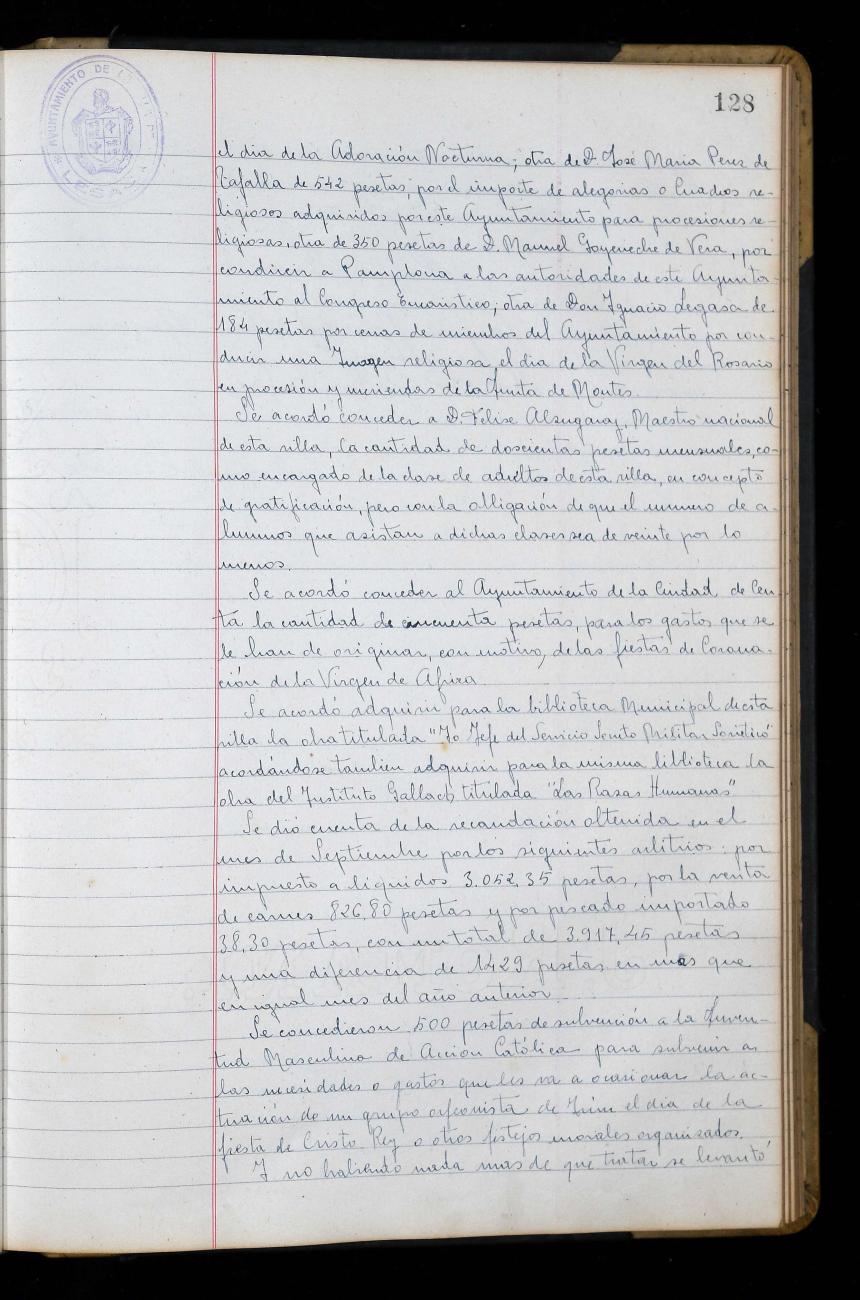 128
AYUNTAMIENTO DE LESACA
el dia de la Adoración Nocturna; otra de D. José Maria Perez de
Tafalla de 542 pesetas, por el importe de alegorias o Cuadros re-
ligiosos adquiridos por este Ayuntamiento para procesiones re-
ligiosas, otra de 350 pesetas de D. Manuel Goyeneche de Vera, por
conducir a Pamplona a las autoridades de este Ayunta-
miento al Congreso Eucaristico; otra de Don Ignacio Legasa de
184 pesetas por cenas de miembros del Ayuntamiento por con-
ducir una Imagen religiosa, el dia de la Virgen del Rosario
en procesión y meriendas de la Junta de Montes.
Se acordó conceder a D. Felise Alzugaray, Maestro nacional
de esta villa, la cantidad de doscientas pesetas mensuales, co-
mo encargado de la clase de adultos de esta villa, en concepto
de gratificación, pero con la obligación de que el numero de a-
lumnos que asistan a dichas clases sea de veinte por lo
menos.
Se acordó conceder al Ayuntamiento de la Ciudad de Ceu-
ta la cantidad de cincuenta pesetas, para los gastos que se
le han de originar, con motivo, de las fiestas de Corona-
ción de la Virgen de Africa.
Se acordó adquirir para la biblioteca Municipal de esta
villa la obra titulada "Yo Jefe del Servicio Secreto Militar Sovietico"
acordándose tambien adquirir para la misma biblioteca la
obra del Instituto Gallach titulada "Las Razas Humanas"
Se dió cuenta de la recaudación obtenida en el
mes de Septiembre por los siguientes arbitrios: por
impuesto a liquidos 3.052,35 pesetas, por la venta
de carnes 826,80 pesetas y por pescado importado
38,30 pesetas, con un total de 3.917,45 pesetas
y una diferencia de 1429 pesetas en mas que
en igual mes del año anterior.
Se concedieron 500 pesetas de subvención a la Juven-
tud Masculina de Acción Católica para subvenir a
las necesidades o gastos que les va a ocasionar la ac-
tuación de un grupo orfeonista de Irún el dia de la
fiesta de Cristo Rey o otros festejos morales organizados.
Y no habiendo nada mas de que tratar se levantó